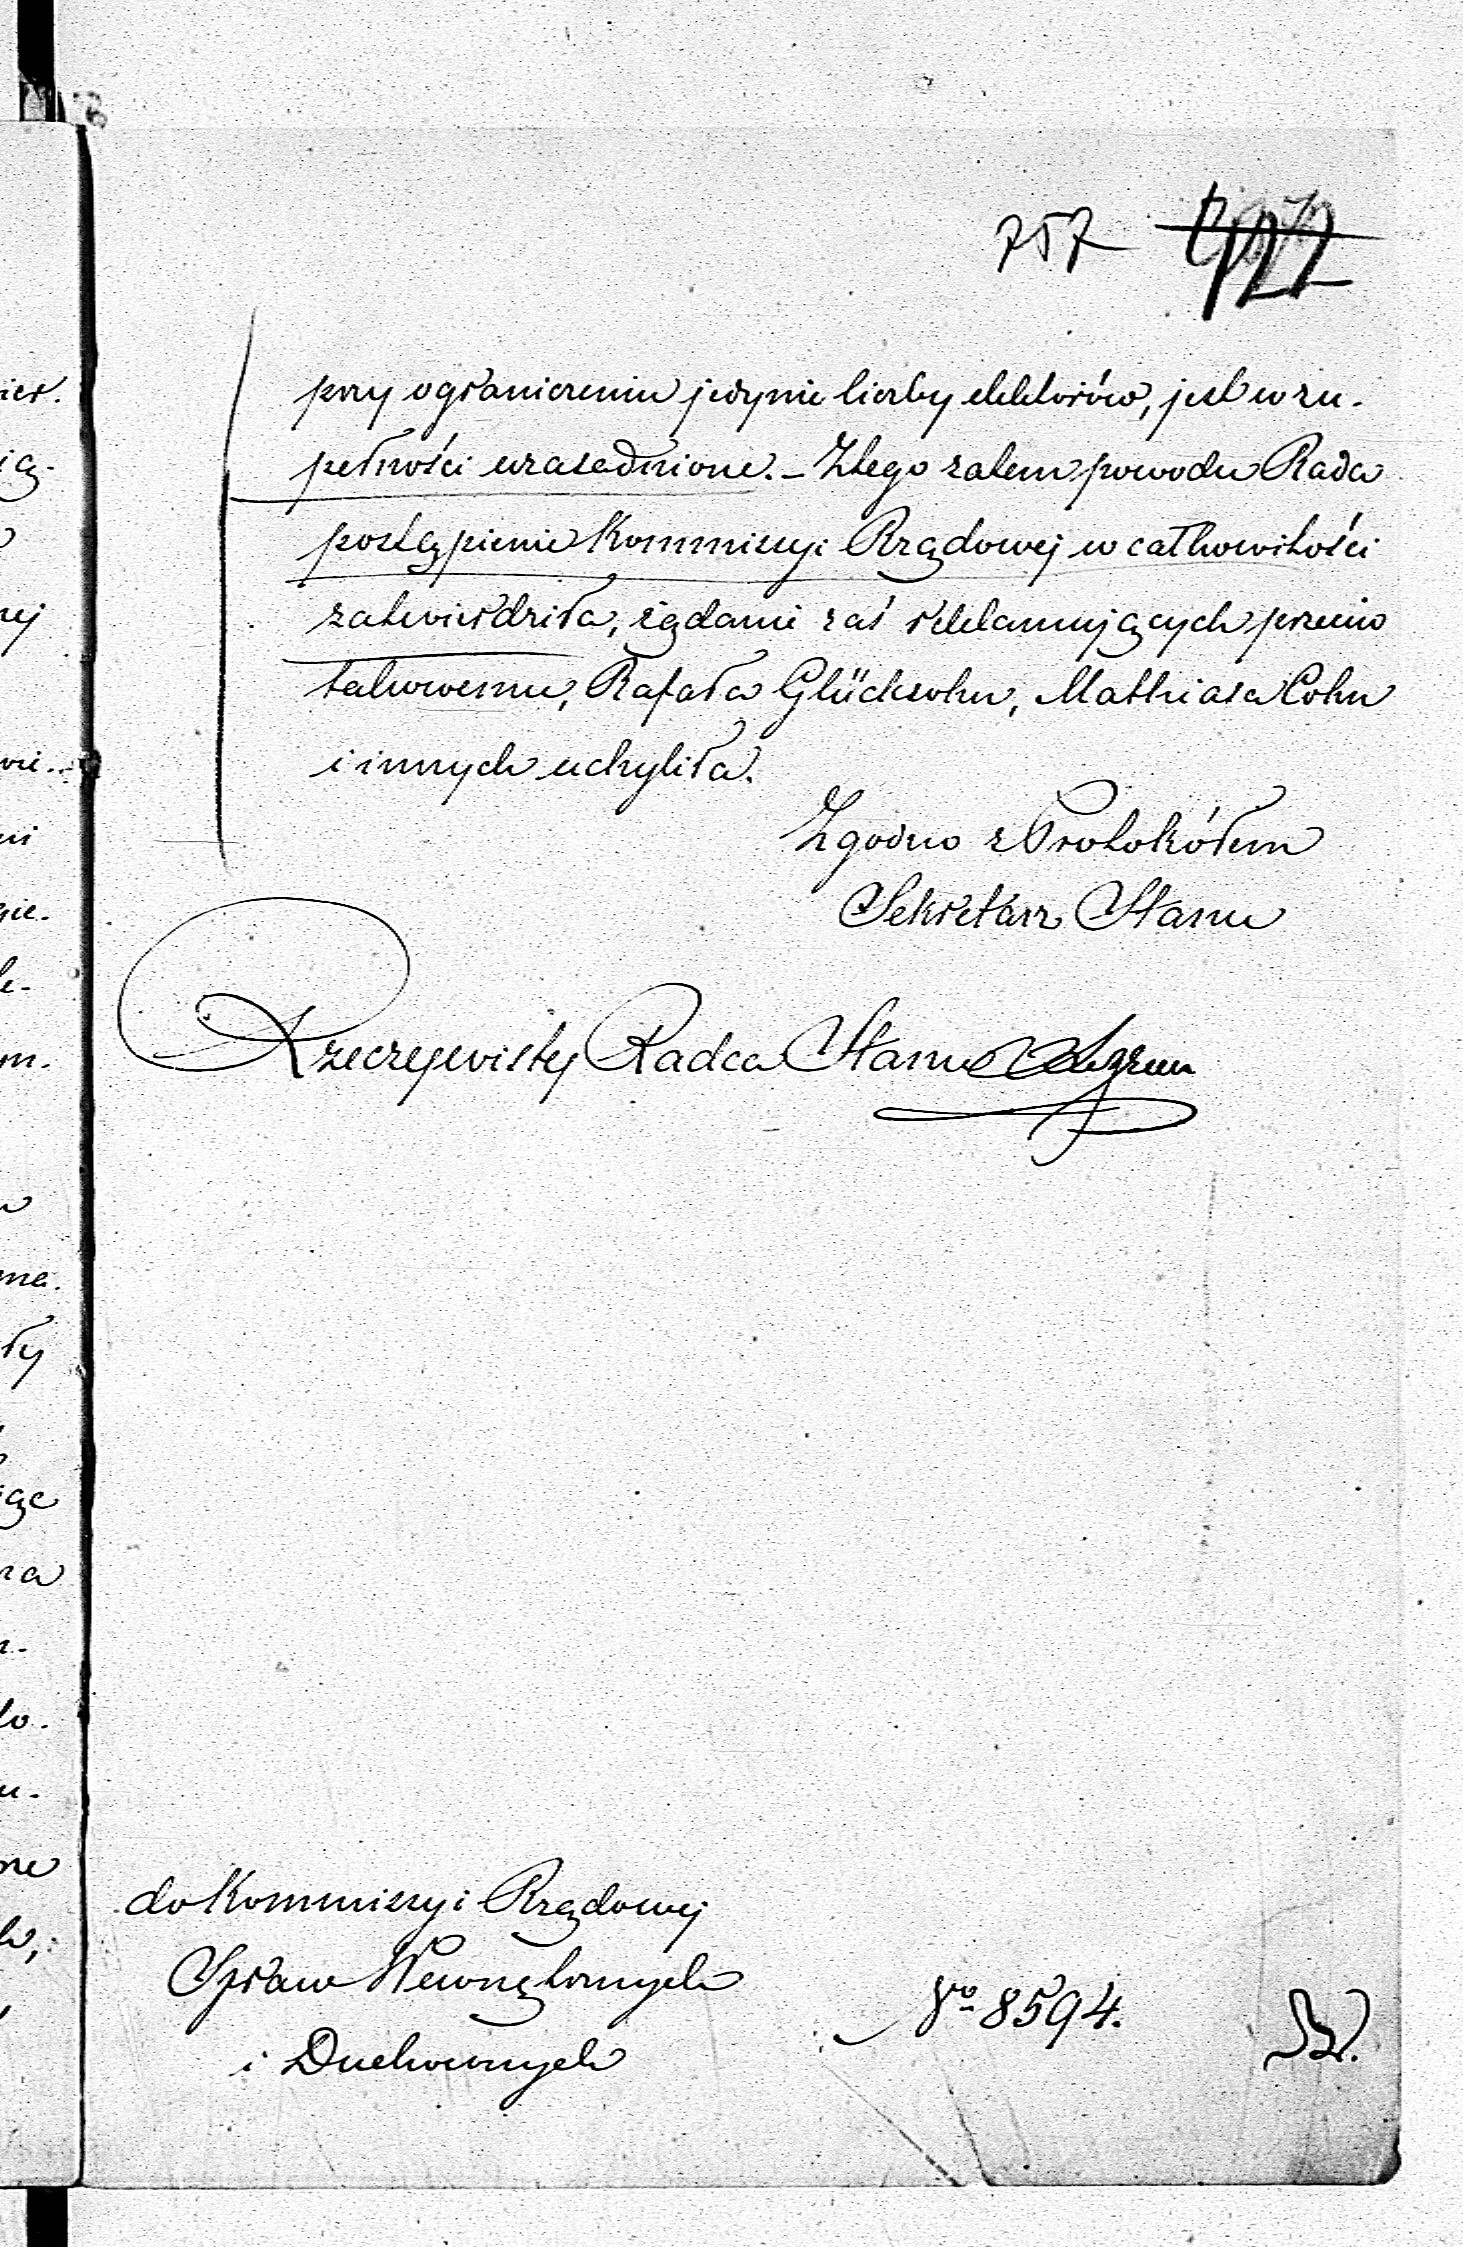 757
przy ograniczeniu jedynie liczby elektorów, jest w zu-
pełności uzasadnione. – Z tego zatem powodu Rada
postąpienie Kommissyi Rządowej w całkowitości
zatwierdziła, żądanie zaś reklamujących przeciw
takowemu, Rafała Glücksohn, Mathiasa Cohn
i innych uchyliła.
Zgodno z Protokółem
Sekretarz Stanu
Rzeczywisty Radca Stanu
do Kommissyi Rządowej
Spraw Wewnętrznych
i Duchownych
No 8594.